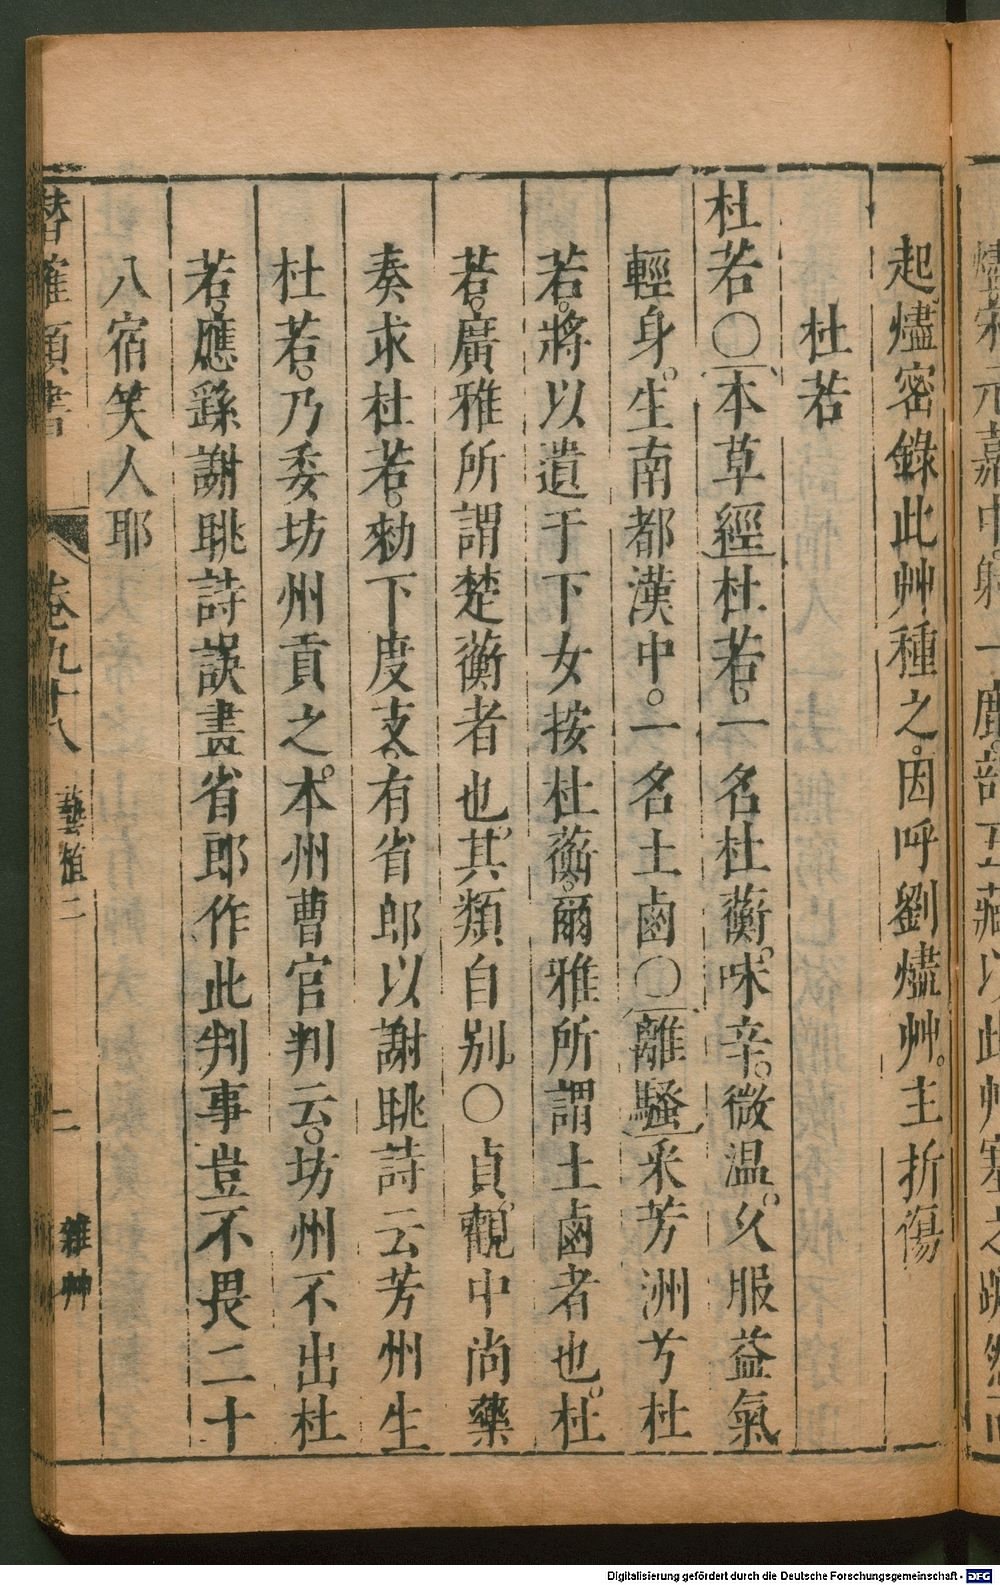 起。燼密錄此艸種之。因呼劉燼艸。主折傷
杜若
杜若〇本草經杜若。一名杜蘅。味辛。微温。久服益氣
輕身。生南都漢中。一名土鹵〇離騷采芳洲兮杜
若。將以遺于下女按杜蘅。爾雅所謂土鹵者也。杜
若。廣雅所謂楚蘅者也。其類自別。〇貞觀中尚藥
奏求杜若。勑下度支。有省郎以謝眺詩云芳州生
杜若。乃委坊州貢之。本州曹官判云。坊州不出杜
若。應繇謝眺詩誤晝省郎作此判事豈不畏二十
八宿笑人耶
潛確類書 卷九十八 藝植二 二 雜艸
Digitalisierung gefördert durch die Deutsche Forschungsgemeinschaft - DFG